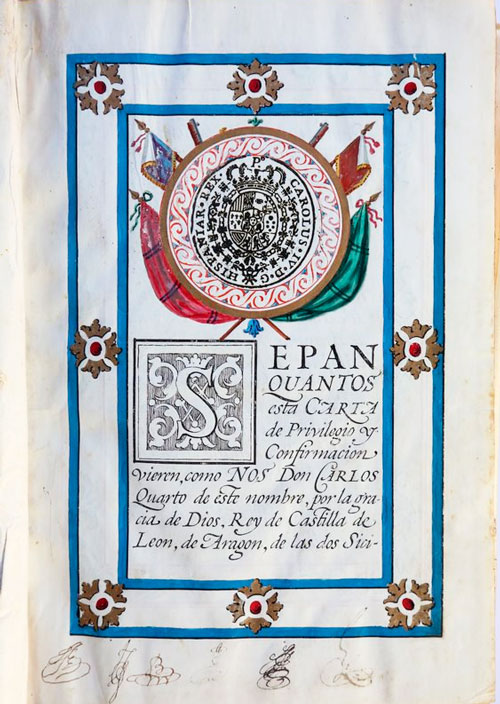 P.
CAROLUS·IV·D·G
HISPANIAR·REX
SEPAN
QUANTOS
esta CARTA
de Privilegio y
Confirmacion
vieren, como NOS Don CARLOS
Quarto de este nombre, por la gra-
cia de Dios, Rey de Castilla de
Leon, de Aragon, de las dos Sici-